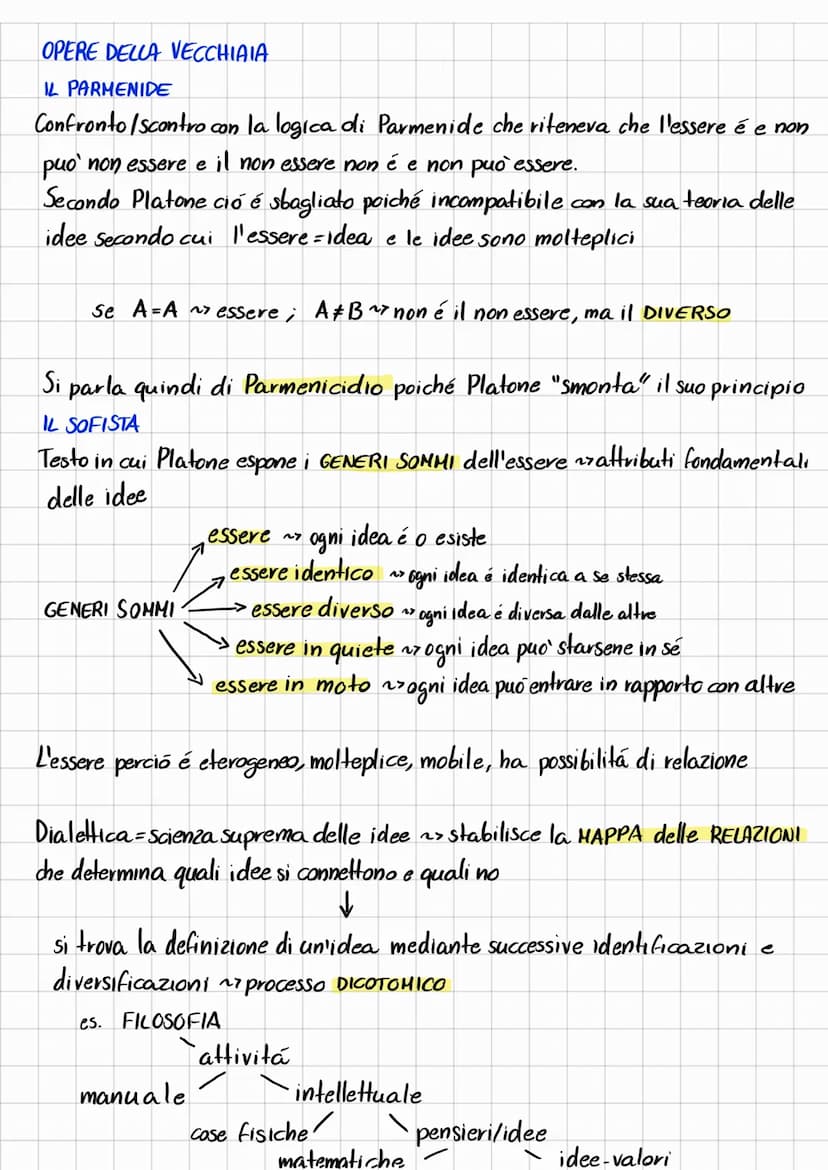 OPERE DELLA VECCHIAIA
IL PARMENIDE
Confronto/scontro con la logica di Parmenide che riteneva che l'essere é e non
puo' non essere e il non essere non é e non può essere.
Secondo Platone ció é sbagliato poiché incompatibile con la sua teoria delle
idee secondo cui l'essere = idea e le idee sono molteplici
se A=A ~> essere ; A≠B ~> non é il non essere, ma il DIVERSO
Si parla quindi di Parmenicidio poiché Platone "smonta" il suo principio
IL SOFISTA
Testo in cui Platone espone i GENERI SOMMI dell'essere ~> attributi fondamentali
delle idee
essere ~> ogni idea é o esiste
essere identico ~> ogni idea é identica a se stessa
GENERI SOMMI → essere diverso ~> ogni idea é diversa dalle altre
essere in quiete ~> ogni idea puo' starsene in sé
essere in moto ~> ogni idea può entrare in rapporto con altre
L'essere perció é eterogeneo, molteplice, mobile, ha possibilitá di relazione
Dialettica = scienza suprema delle idee ~> stabilisce la MAPPA delle RELAZIONI
che determina quali idee si connettono e quali no
↓
si trova la definizione di un'idea mediante successive identificazioni e
diversificazioni ~> processo DICOTOMICO
es. FILOSOFIA
attivitá
manuale intellettuale
cose fisiche pensieri/idee
matematiche idee-valori